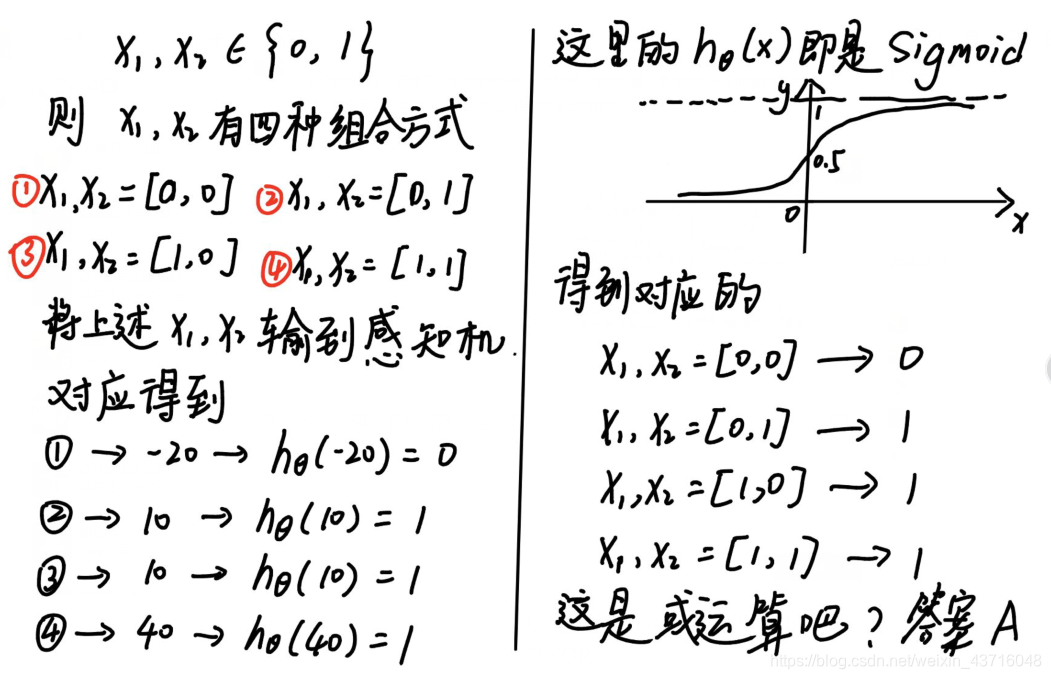 x₁, x₂ ∈ {0, 1}
则 x₁, x₂ 有四种组合方式
①x₁,x₂=[0,0] ②x₁,x₂=[0,1]
③x₁,x₂=[1,0] ④x₁,x₂=[1,1]
将上述 x₁,x₂ 输到感知机.
对应得到
① → -20 → hθ(-20) = 0
② → 10 → hθ(10) = 1
③ → 10 → hθ(10) = 1
④ → 40 → hθ(40) = 1
这里的 hθ(x) 即是 Sigmoid
y
1
0.5
0
x
得到对应的
x₁, x₂ = [0,0] → 0
x₁, x₂ = [0,1] → 1
x₁,x₂ = [1,0] → 1
x₁, x₂ = [1,1] → 1
这是 或运算吧? 答案 A
https://blog.csdn.net/weixin_43716048